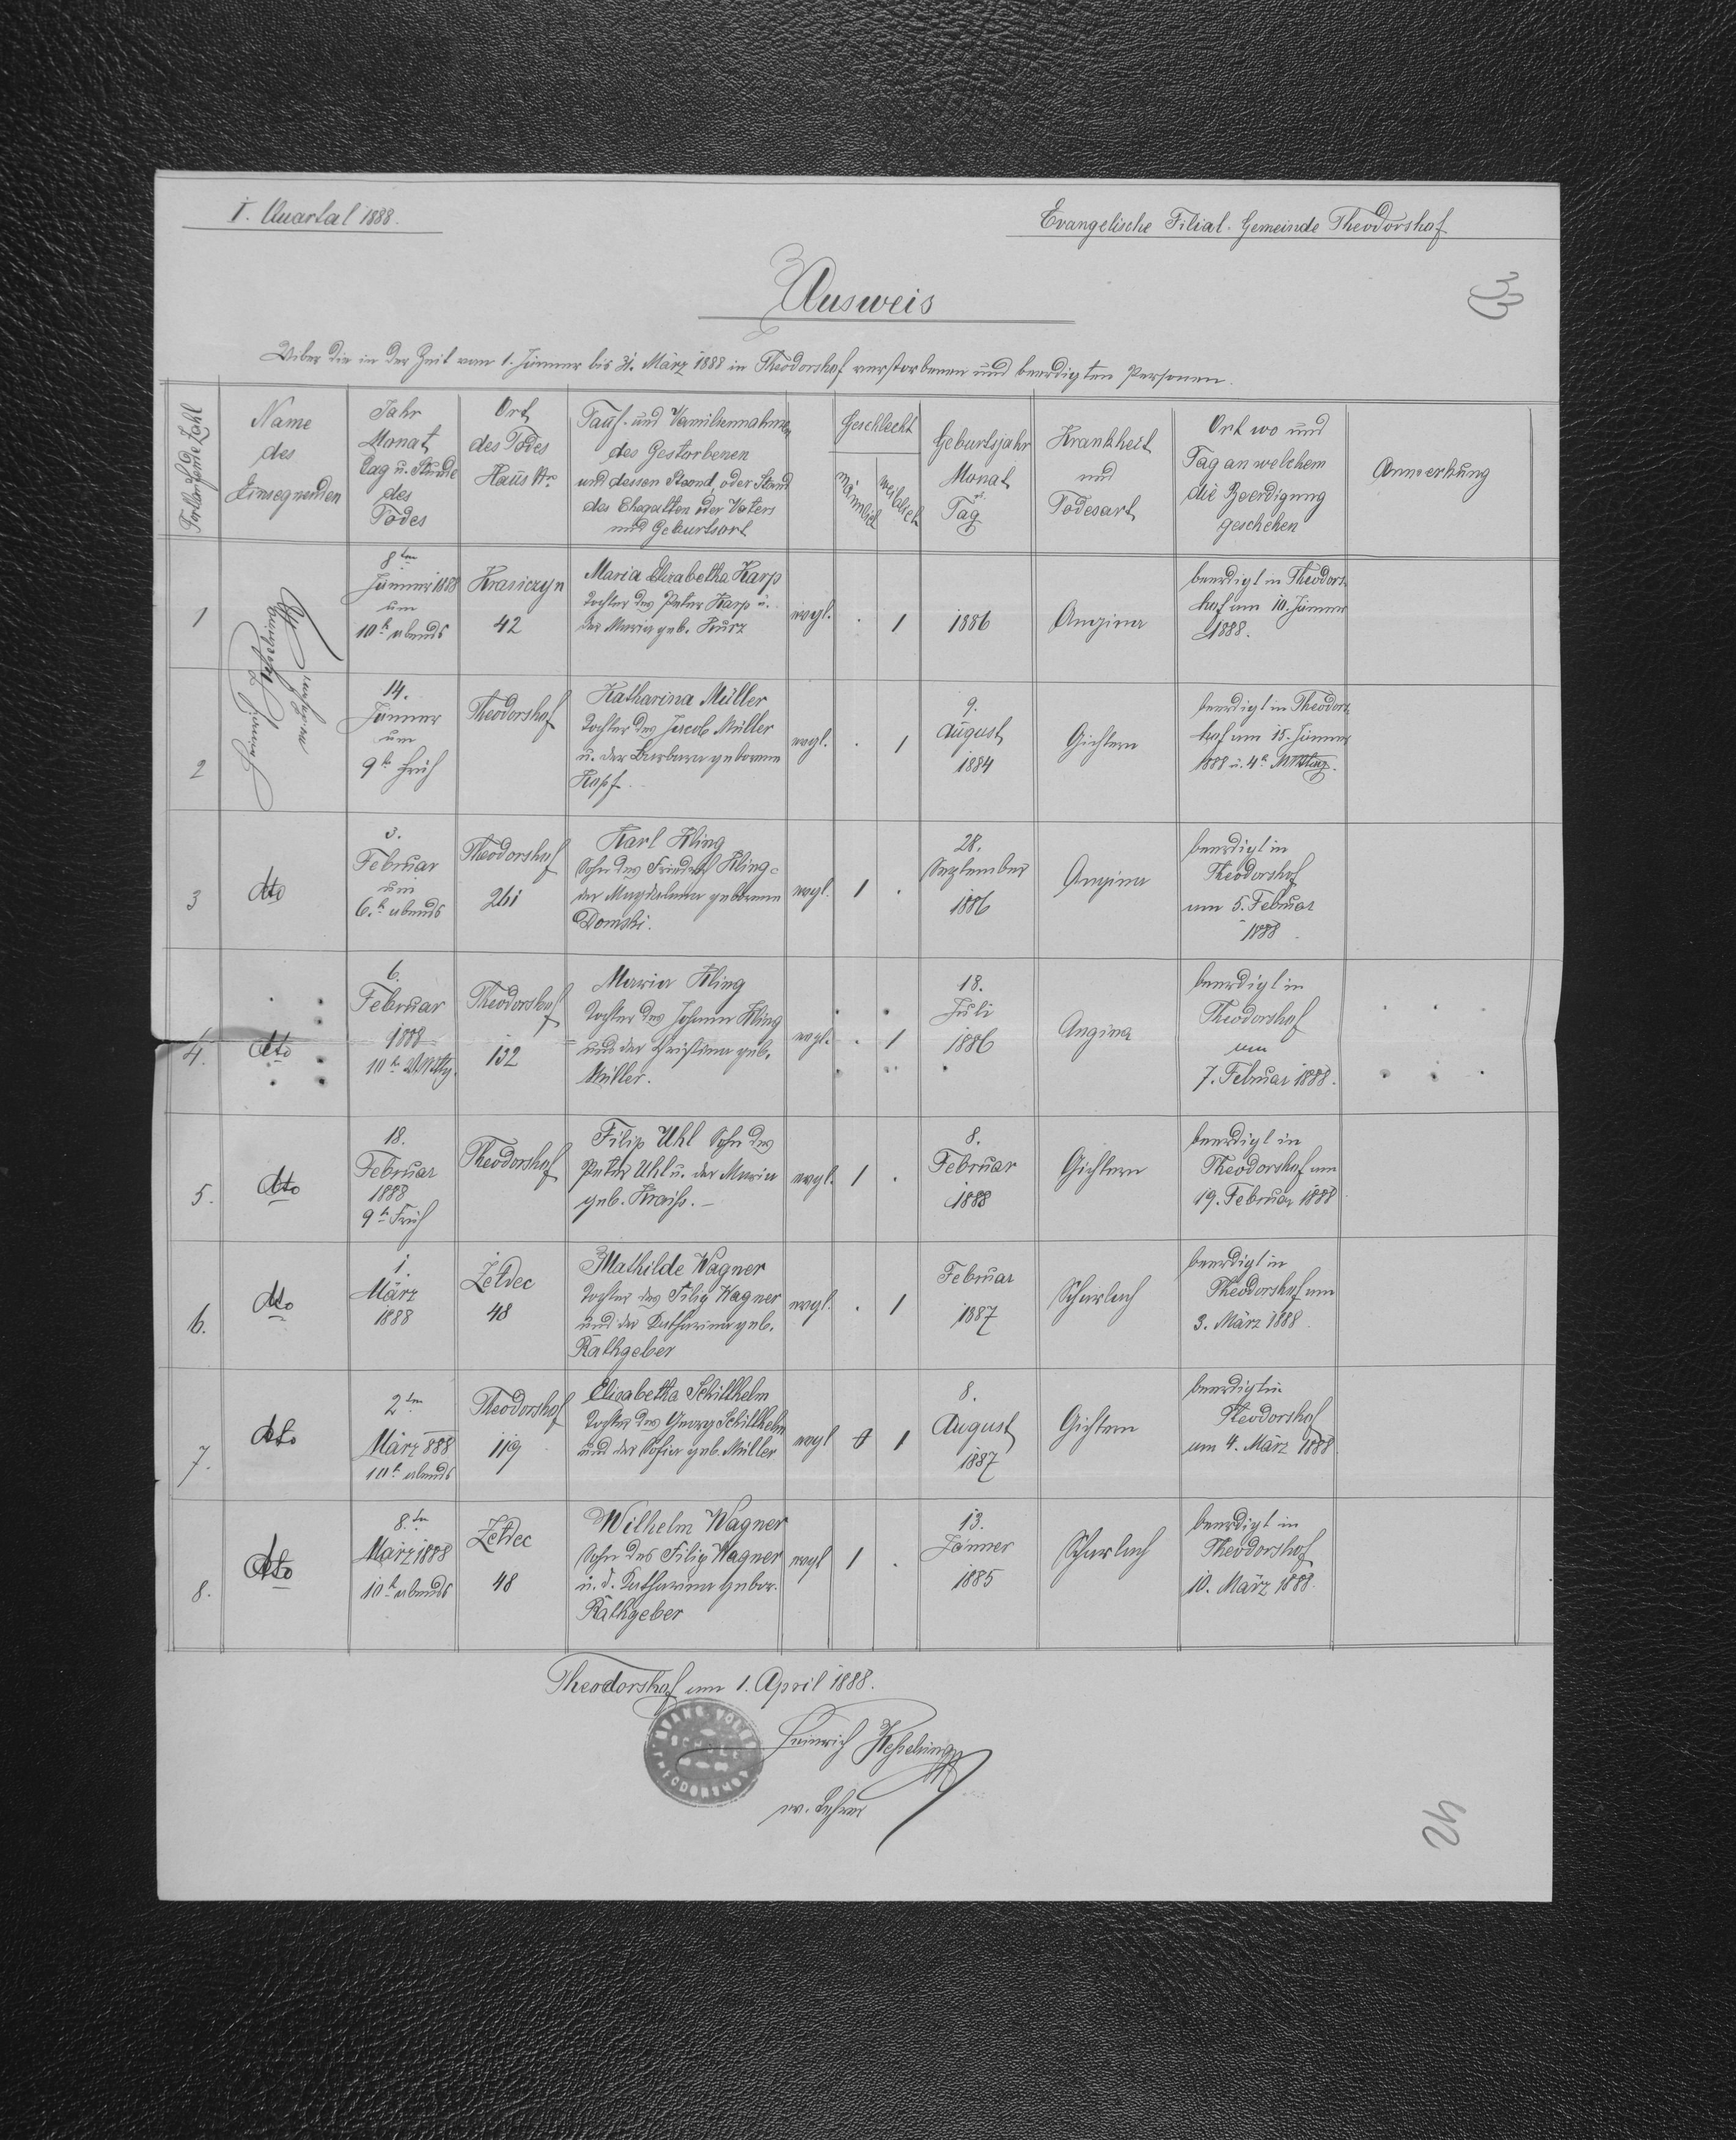 I. Quartal 1888.
Evangelische Filial. Gemeinde Theodorshof
33
Ausweis
Ueber die in der Zeit vom 1. Jänner bis 31. März 1888 in Theodorshof verstorbenen und beerdigten Personen.
Fortlaufende Zahl
Name
des
Einsegnenden
Jahr
Monat
Tag u. Stunde
des
Todes
Ort
des Todes
Haus Nr.
Tauf- und Familiennahmen
des Gestorbenen
und dessen Stand, oder Stand
des Ehegatten oder Vaters
und Geburtsort
Geschlecht
männlich
weiblich
Geburtsjahr
Monat
u.
Tag
Krankheit
und
Todesart
Ort wo und
Tag an welchem
die Beerdigung
geschehen
Anmerkung
1
Heinrich
8ten
Jänner 1888
um
10h abends
Krasiczyn
42
Maria Elisabetha Karp
Tochter des Peter Karp u.
der Maria geb. Kurz
evgl.
1
1886
Angina
beerdigt in Theodors-
hof am 10. Jänner
1888.
2
14.
Jänner
um
9h Früh
Theodorshof
Katharina Müller
Tochter des Jacob Müller
u. der Barbara geborene
Kopf.
evgl.
1
9.
August
1884
Gichtern
beerdigt in Theodors-
hof am 15. Jänner
1888 u. 4h
3
dto
3.
Februar
um
6.h abends
Theodorshof
261
Karl Kling
Sohn des Friedrich Kling
der Magdalena geborene
Domski.
evgl.
1
28.
September
1886
Angina
beerdigt in
Theodorshof
am 5. Februar
1888
4.
dto
6.
Februar
1888
10h
Theodorshof
132
Maria Kling
Tochter des Johann Kling
und der Christina geb.
Müller.
evgl.
1
18.
Juli
1886
Angina
beerdigt in
Theodorshof
am
7. Februar 1888.
5.
dto
18.
Februar
1888
9h Früh
Theodorshof
Filip Uhl Sohn des
Peter Uhl u. der Maria
geb. Kraiß. –
evgl.
1
8.
Februar
1888
Gichtern
beerdigt in
Theodorshof am
19. Februar 1888
6.
dto
1.
März
1888
Zetdec
48
Mathilde Wagner
Tochter des Filip Wagner
und der Katharina geb.
Rathgeber
evgl.
1
Februar
1887
Scharlach
beerdigt in
Theodorshof am
3. März 1888.
7.
dto
2ten
März 888
10h abends
Theodorshof
119
Elisabetha Schillhelm
Tochter des Georg Schillhelm
und der Sofia geb. Müller
evgl
1
8.
August
1887
Gichtern
beerdigt in
Theodorshof
am 4. März 1888
8.
dto
8.ten
März 1888
10h abends
Zetdec
48
Wilhelm Wagner
Sohn des Filip Wagner
u. d. Katharina gebor.
Rathgeber
evgl
1
13.
Jänner
1885
Scharlach
beerdigt in
Theodorshof
10. März 1888.
Theodorshof am 1. April 1888.
Heinrich Kesselring
ev. Lehrer
42